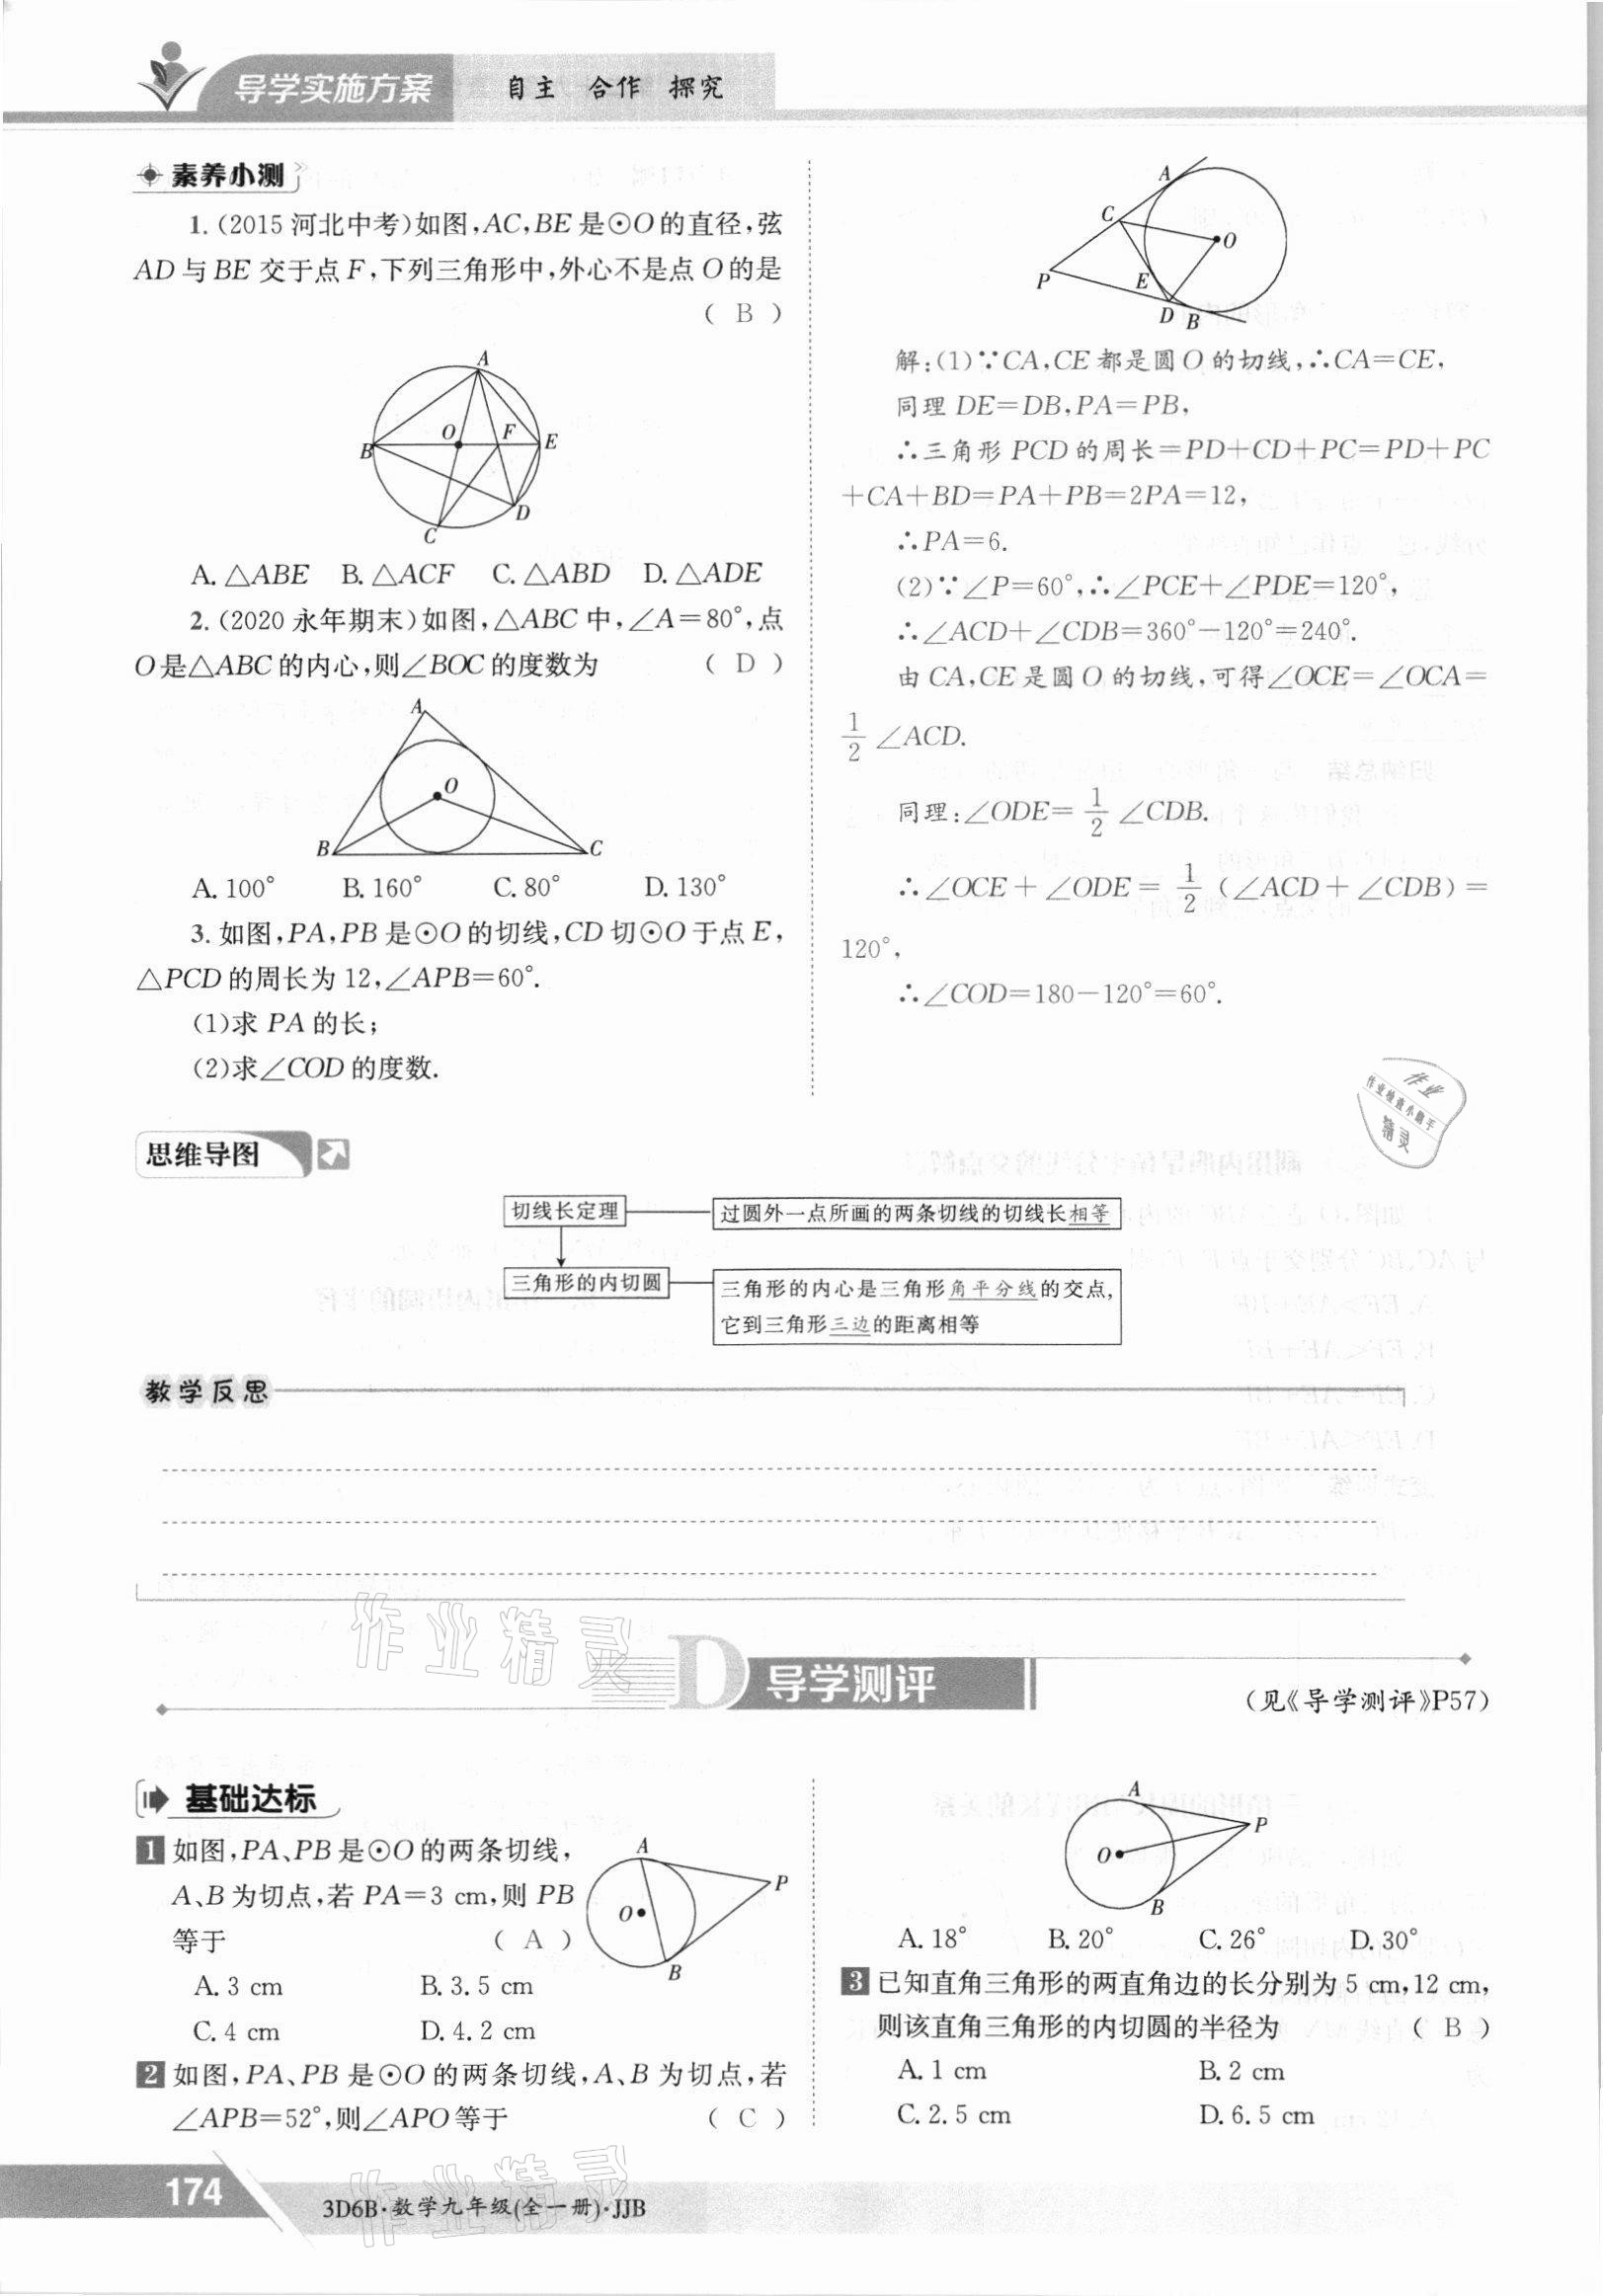 导学实施方案 自主 合作 探究
素养小测
1. (2015 河北中考)如图,AC,BE 是⊙O 的直径,弦
AD 与 BE 交于点 F,下列三角形中,外心不是点 O 的是
( B )
A
B
O
F
E
D
C
A. △ABE B. △ACF C. △ABD D. △ADE
2. (2020 永年期末)如图,△ABC 中,∠A=80°,点
O 是△ABC 的内心,则∠BOC 的度数为 ( D )
A
O
B
C
A. 100° B. 160° C. 80° D. 130°
3. 如图,PA,PB 是⊙O 的切线,CD 切⊙O 于点 E,
△PCD 的周长为 12,∠APB=60°.
(1)求 PA 的长;
(2)求∠COD 的度数.
A
C
O
P
E
D
B
解:(1)∵CA,CE 都是圆 O 的切线,∴CA=CE,
同理 DE=DB,PA=PB,
∴三角形 PCD 的周长=PD+CD+PC=PD+PC
+CA+BD=PA+PB=2PA=12,
∴PA=6.
(2)∵∠P=60°,∴∠PCE+∠PDE=120°,
∴∠ACD+∠CDB=360°-120°=240°.
由 CA,CE 是圆 O 的切线,可得∠OCE=∠OCA=
1/2 ∠ACD.
同理:∠ODE= 1/2 ∠CDB.
∴∠OCE+∠ODE= 1/2 (∠ACD+∠CDB)=
120°,
∴∠COD=180-120°=60°.
作业
作业检查小助手
精灵
思维导图
切线长定理 过圆外一点所画的两条切线的切线长相等
三角形的内切圆 三角形的内心是三角形角平分线的交点,
它到三角形三边的距离相等
教学反思
作业精灵
D 导学测评
(见《导学测评》P57)
基础达标
1 如图,PA、PB 是⊙O 的两条切线,
A、B 为切点,若 PA=3 cm,则 PB
等于 ( A )
A
P
O
B
A. 3 cm B. 3.5 cm
C. 4 cm D. 4.2 cm
2 如图,PA、PB 是⊙O 的两条切线,A、B 为切点,若
∠APB=52°,则∠APO 等于 ( C )
A
P
O
B
A. 18° B. 20° C. 26° D. 30°
3 已知直角三角形的两直角边的长分别为 5 cm,12 cm,
则该直角三角形的内切圆的半径为 ( B )
A. 1 cm B. 2 cm
C. 2.5 cm D. 6.5 cm
作业精灵
174 3D6B·数学九年级(全一册)·JJB